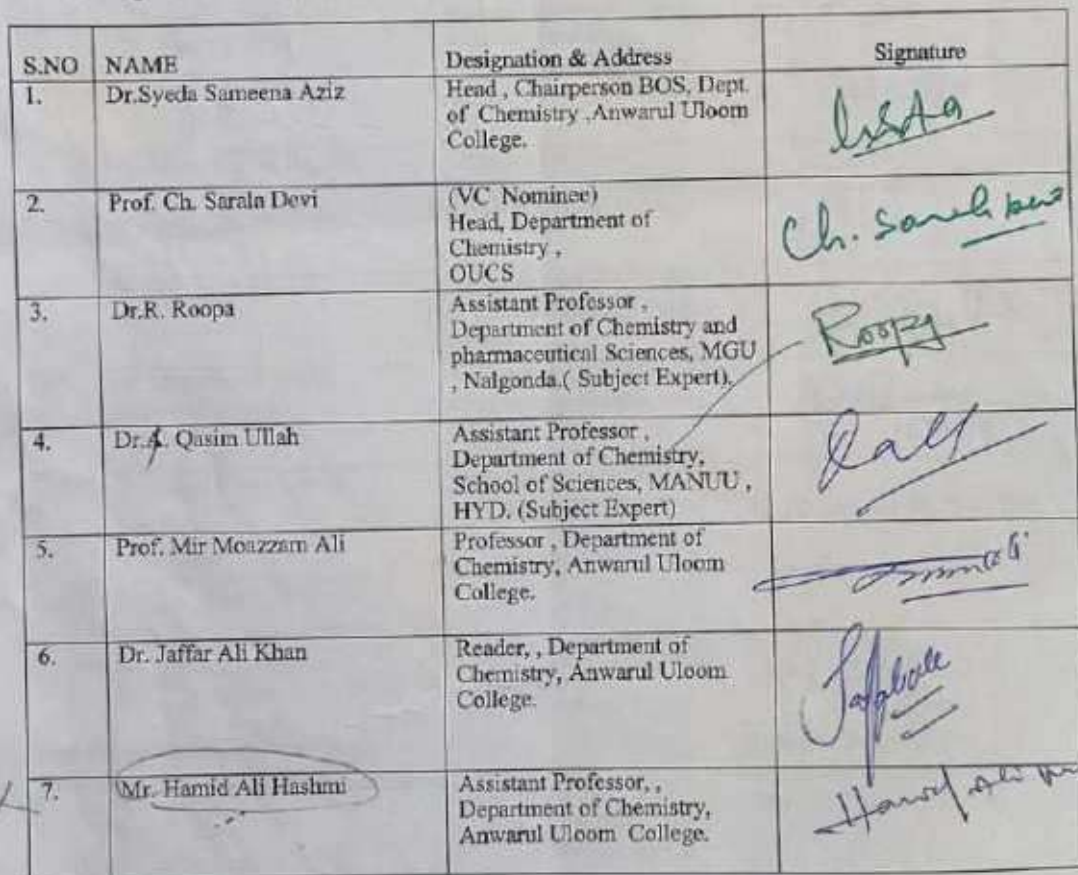 S.NO NAME Designation & Address Signature
1. Dr.Syeda Sameena Aziz Head , Chairperson BOS, Dept.
of Chemistry ,Anwarul Uloom
College.
2. Prof. Ch. Sarala Devi (VC Nominee)
Head, Department of
Chemistry ,
OUCS
Ch. Sarala Devi
3. Dr.R. Roopa Assistant Professor ,
Department of Chemistry and
pharmaceutical Sciences, MGU
, Nalgonda.( Subject Expert).
Roopa
4. Dr. Qasim Ullah Assistant Professor ,
Department of Chemistry,
School of Sciences, MANUU ,
HYD. (Subject Expert)
5. Prof. Mir Moazzam Ali Professor , Department of
Chemistry, Anwarul Uloom
College.
6. Dr. Jaffar Ali Khan Reader, , Department of
Chemistry, Anwarul Uloom
College.
7. Mr. Hamid Ali Hashmi Assistant Professor, ,
Department of Chemistry,
Anwarul Uloom College.